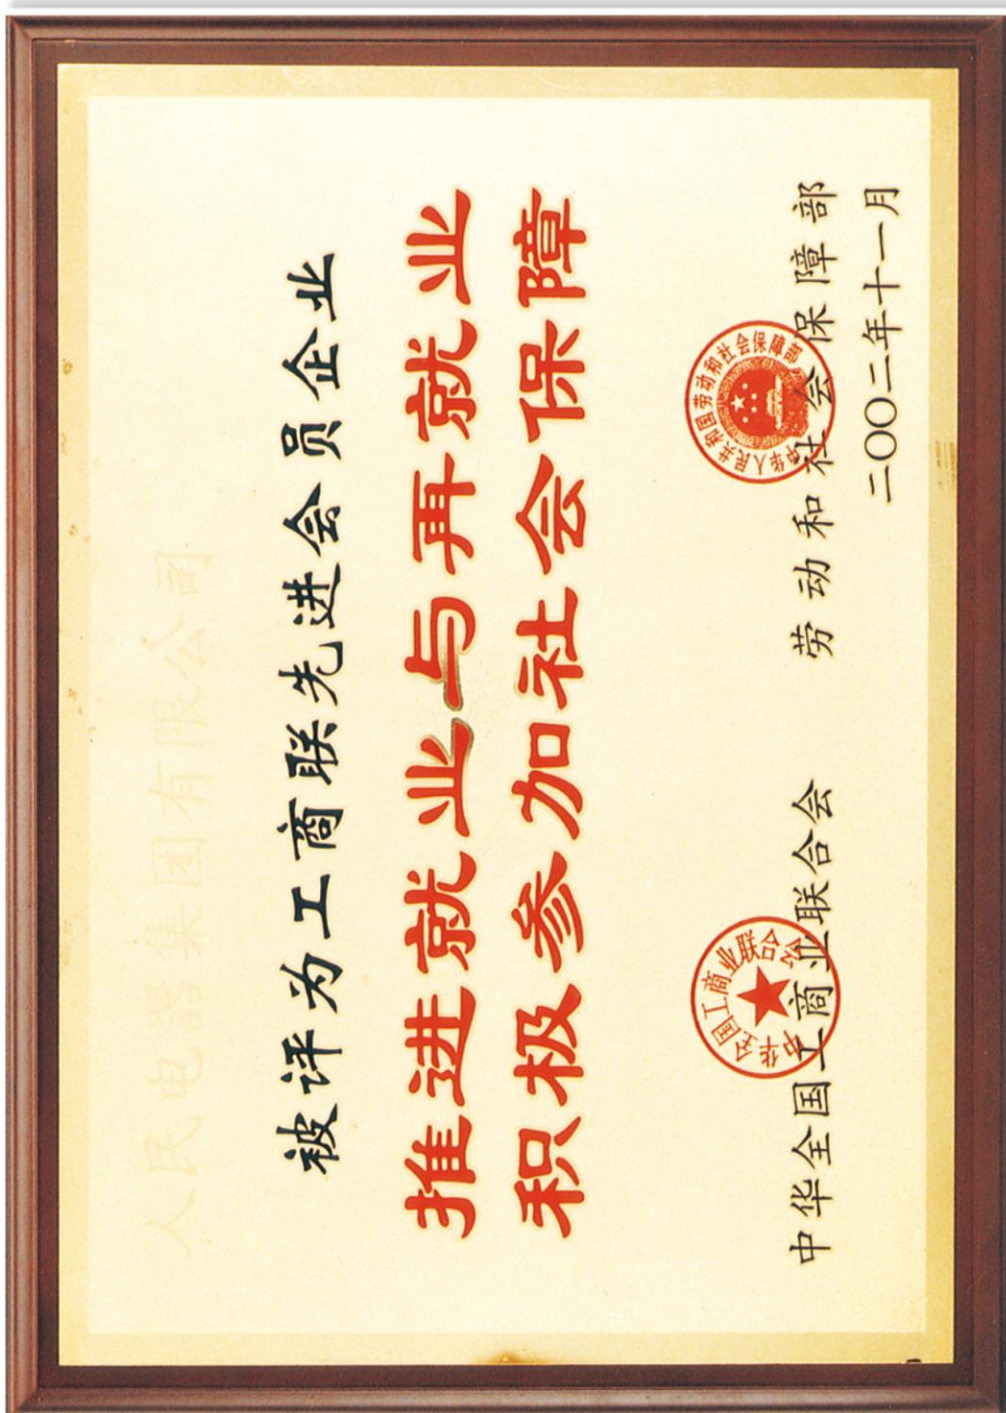 人民电器集团有限公司
被评为工商联先进会员企业
推进就业与再就业
积极参加社会保障
中华全国工商业联合会 劳动和社会保障部
二〇〇二年十一月
中华全国工商业联合会
中华人民共和国劳动和社会保障部